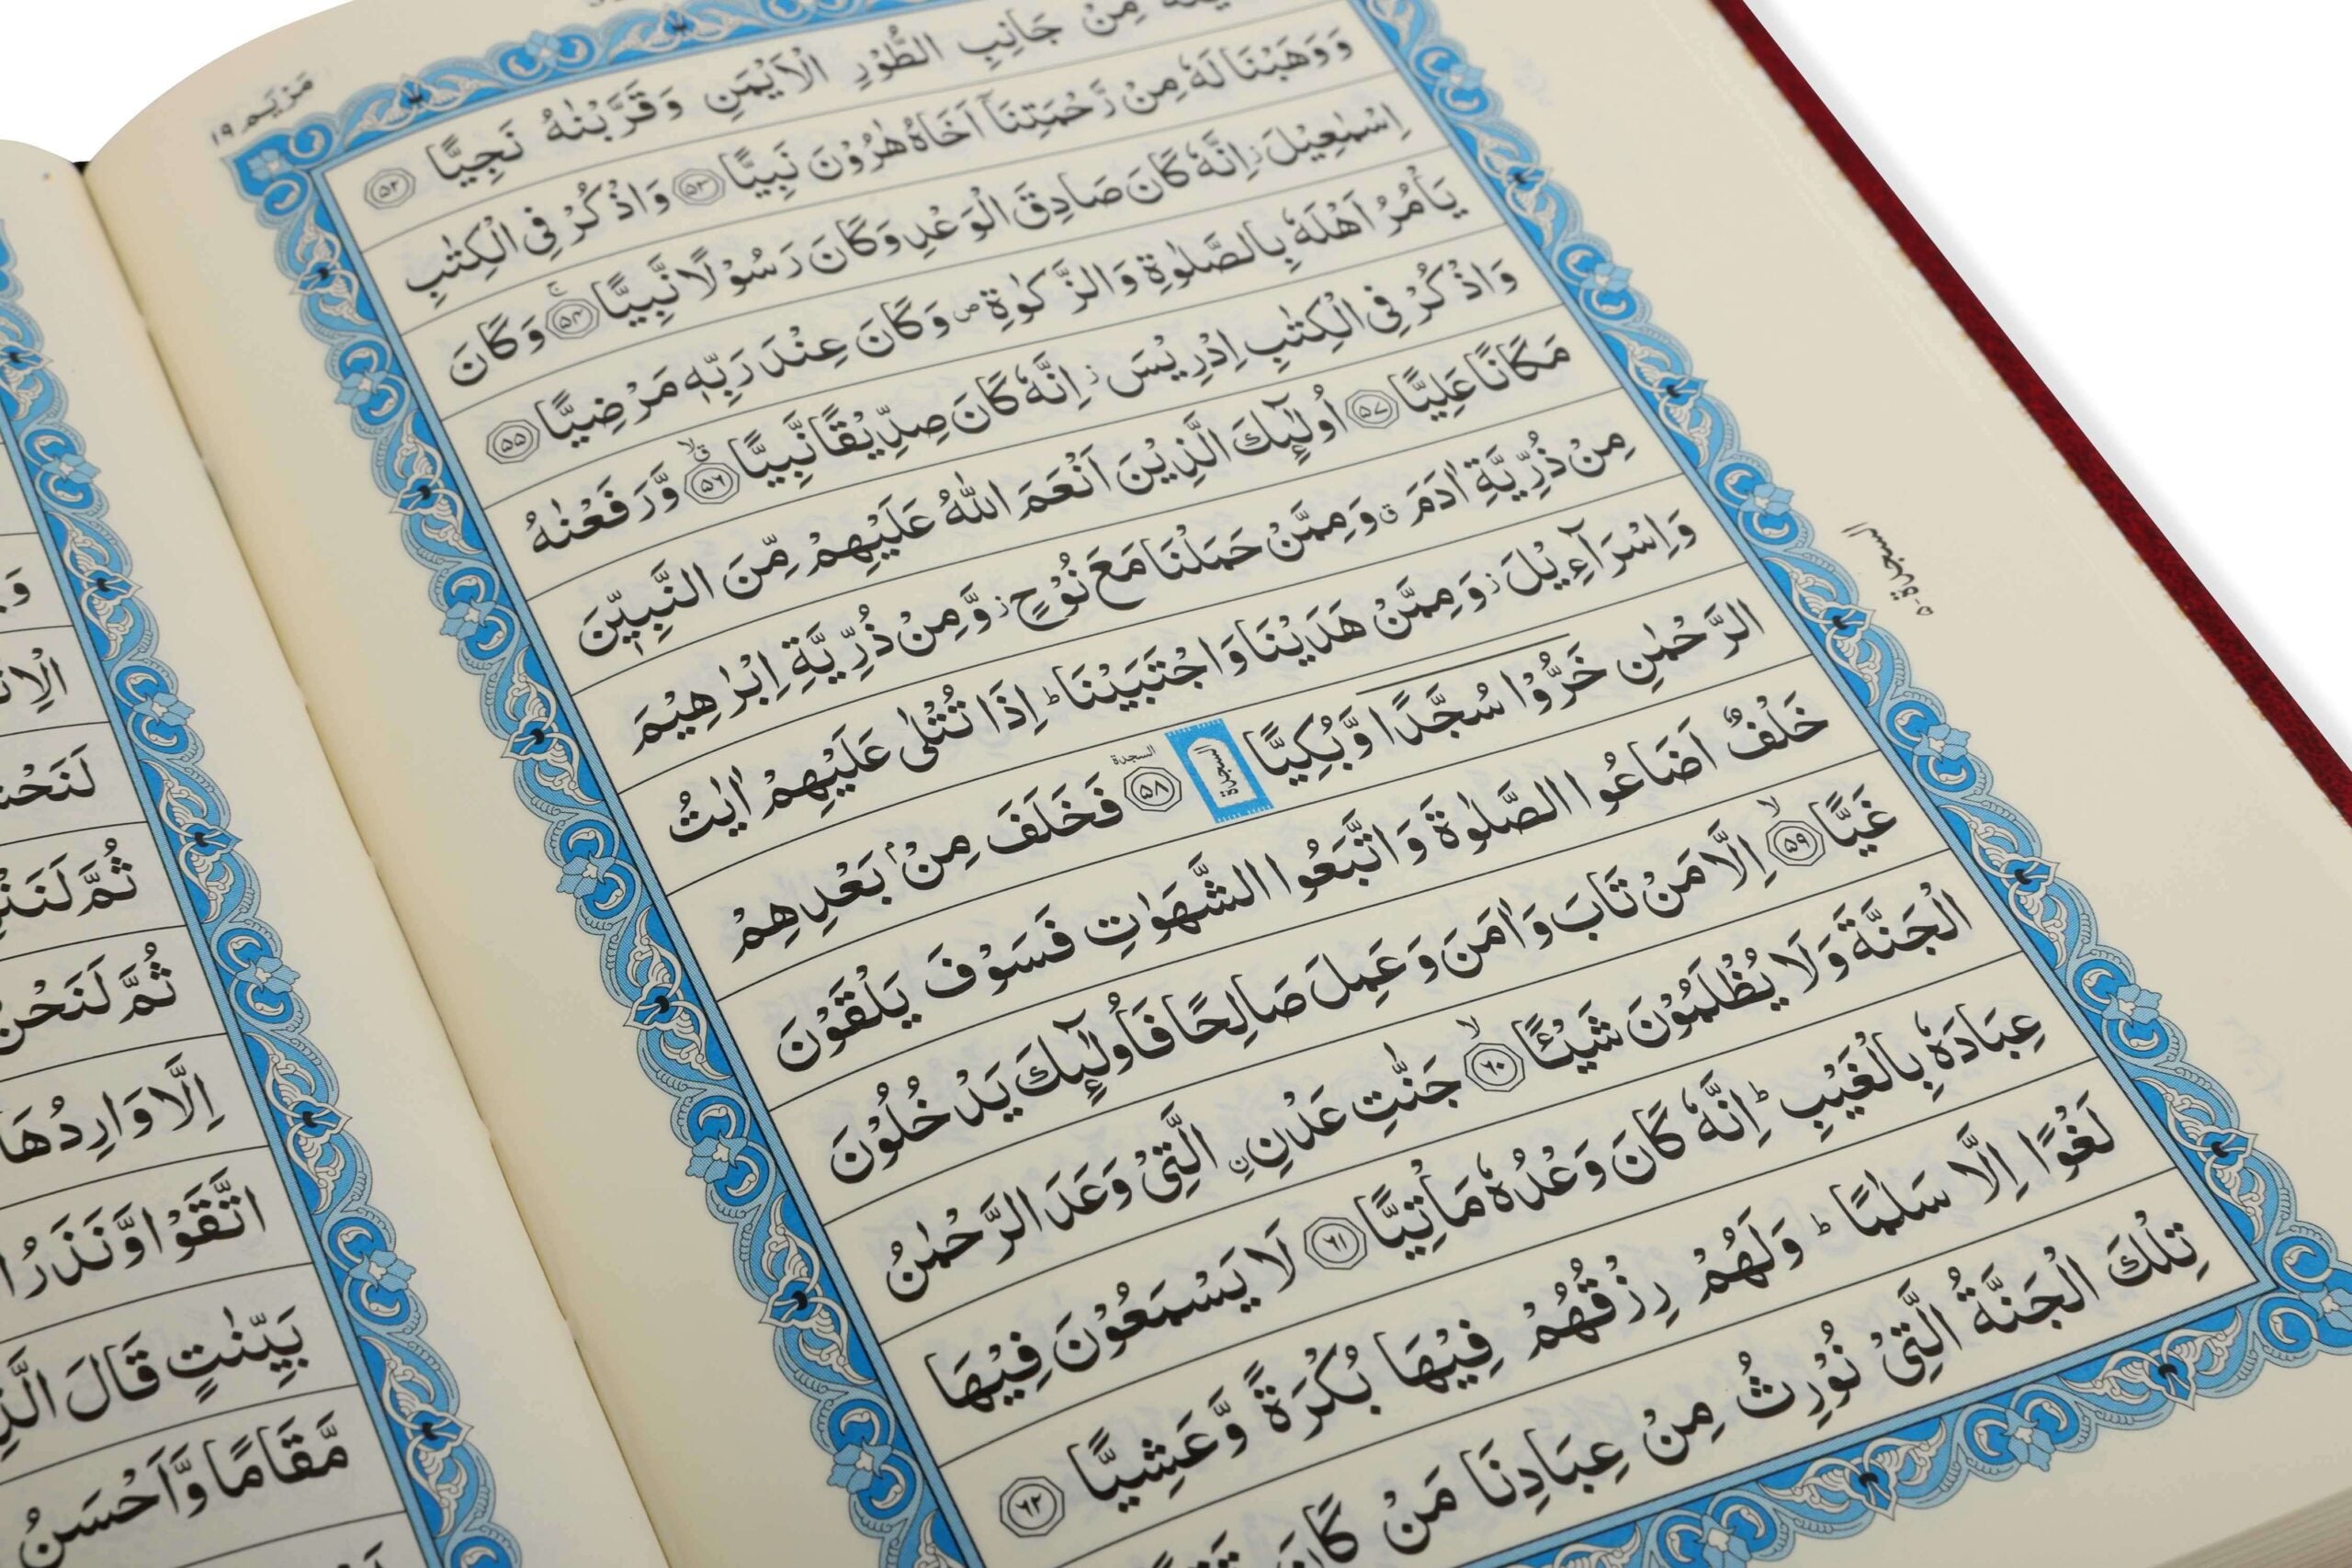 مَرْيَم ١٩
مِنْ جَانِبِ الطُّوْرِ الْاَيْمَنِ وَقَرَّبْنٰهُ نَجِيًّا ۵۲
وَوَهَبْنَا لَهٗ مِنْ رَّحْمَتِنَاۤ اَخَاهُ هٰرُوْنَ نَبِيًّا ۵۳ وَاذْكُرْ فِي الْكِتٰبِ
اِسْمٰعِيْلَ ز اِنَّهٗ كَانَ صَادِقَ الْوَعْدِ وَكَانَ رَسُوْلًا نَّبِيًّا ۵۴ ج وَكَانَ
يَاْمُرُ اَهْلَهٗ بِالصَّلٰوةِ وَالزَّكٰوةِ ص وَكَانَ عِنْدَ رَبِّهٖ مَرْضِيًّا ۵۵
وَاذْكُرْ فِي الْكِتٰبِ اِدْرِيْسَ ز اِنَّهٗ كَانَ صِدِّيْقًا نَّبِيًّا ۵۶ قلا وَّرَفَعْنٰهُ
مَكَانًا عَلِيًّا ۵۷ اُولٰٓئِكَ الَّذِيْنَ اَنْعَمَ اللّٰهُ عَلَيْهِمْ مِّنَ النَّبِيّٖنَ
مِنْ ذُرِّيَّةِ اٰدَمَ ق وَمِمَّنْ حَمَلْنَا مَعَ نُوْحٍ ز وَّمِنْ ذُرِّيَّةِ اِبْرٰهِيْمَ
وَاِسْرَآءِيْلَ ز وَمِمَّنْ هَدَيْنَا وَاجْتَبَيْنَا ط اِذَا تُتْلٰى عَلَيْهِمْ اٰيٰتُ
السجدة ۵
الرَّحْمٰنِ خَرُّوْا سُجَّدًا وَّبُكِيًّا السجدة ۵۸ السجدة فَخَلَفَ مِنْۢ بَعْدِهِمْ
خَلْفٌ اَضَاعُوا الصَّلٰوةَ وَاتَّبَعُوا الشَّهَوٰتِ فَسَوْفَ يَلْقَوْنَ
غَيًّا ۵۹ لا اِلَّا مَنْ تَابَ وَاٰمَنَ وَعَمِلَ صَالِحًا فَاُولٰٓئِكَ يَدْخُلُوْنَ
الْجَنَّةَ وَلَا يُظْلَمُوْنَ شَيْـًٔا ۶۰ لا جَنّٰتِ عَدْنِ ِۨ الَّتِيْ وَعَدَ الرَّحْمٰنُ
عِبَادَهٗ بِالْغَيْبِ ط اِنَّهٗ كَانَ وَعْدُهٗ مَاْتِيًّا ۶۱ لَا يَسْمَعُوْنَ فِيْهَا
لَغْوًا اِلَّا سَلٰمًا ط وَلَهُمْ رِزْقُهُمْ فِيْهَا بُكْرَةً وَّعَشِيًّا ۶۲
تِلْكَ الْجَنَّةُ الَّتِيْ نُوْرِثُ مِنْ عِبَادِنَا مَنْ كَانَ
لَنَحْنُ
ثُمَّ
ثُمَّ لَنَحْنُ
اِلَّا وَارِدُهَا
اتَّقَوْا وَّنَذَرُ
بَيِّنٰتٍ قَالَ
مَّقَامًا وَّاَحْسَنُ